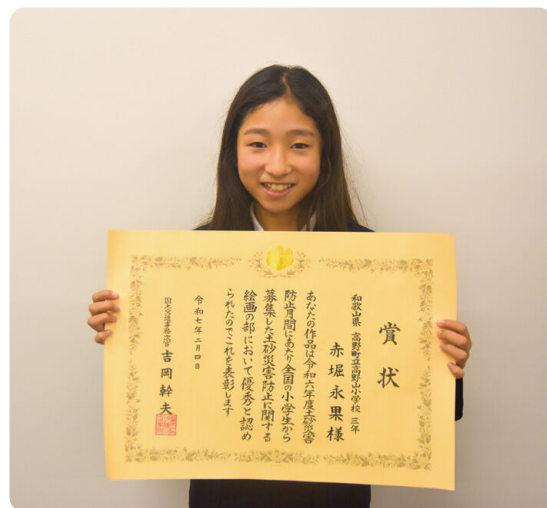 賞状
和歌山県 高野町立高野山小学校 三年
赤堀 永果 様
あなたの作品は令和六年度土砂災害
防止月間にあたり全国の小学生から
募集した土砂災害防止に関する
絵画の部において優秀と認め
られたのでこれを表彰します
令和七年二月四日
国土交通事務次官 吉岡 幹夫